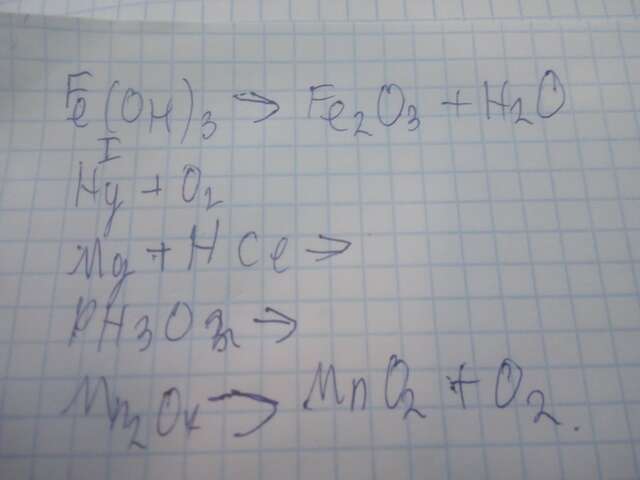 Fe(OH)3 → Fe2O3 + H2O
I
Hg + O2
Mg + HCl →
PH3O →
Mn2Ox → MnO2 + O2.